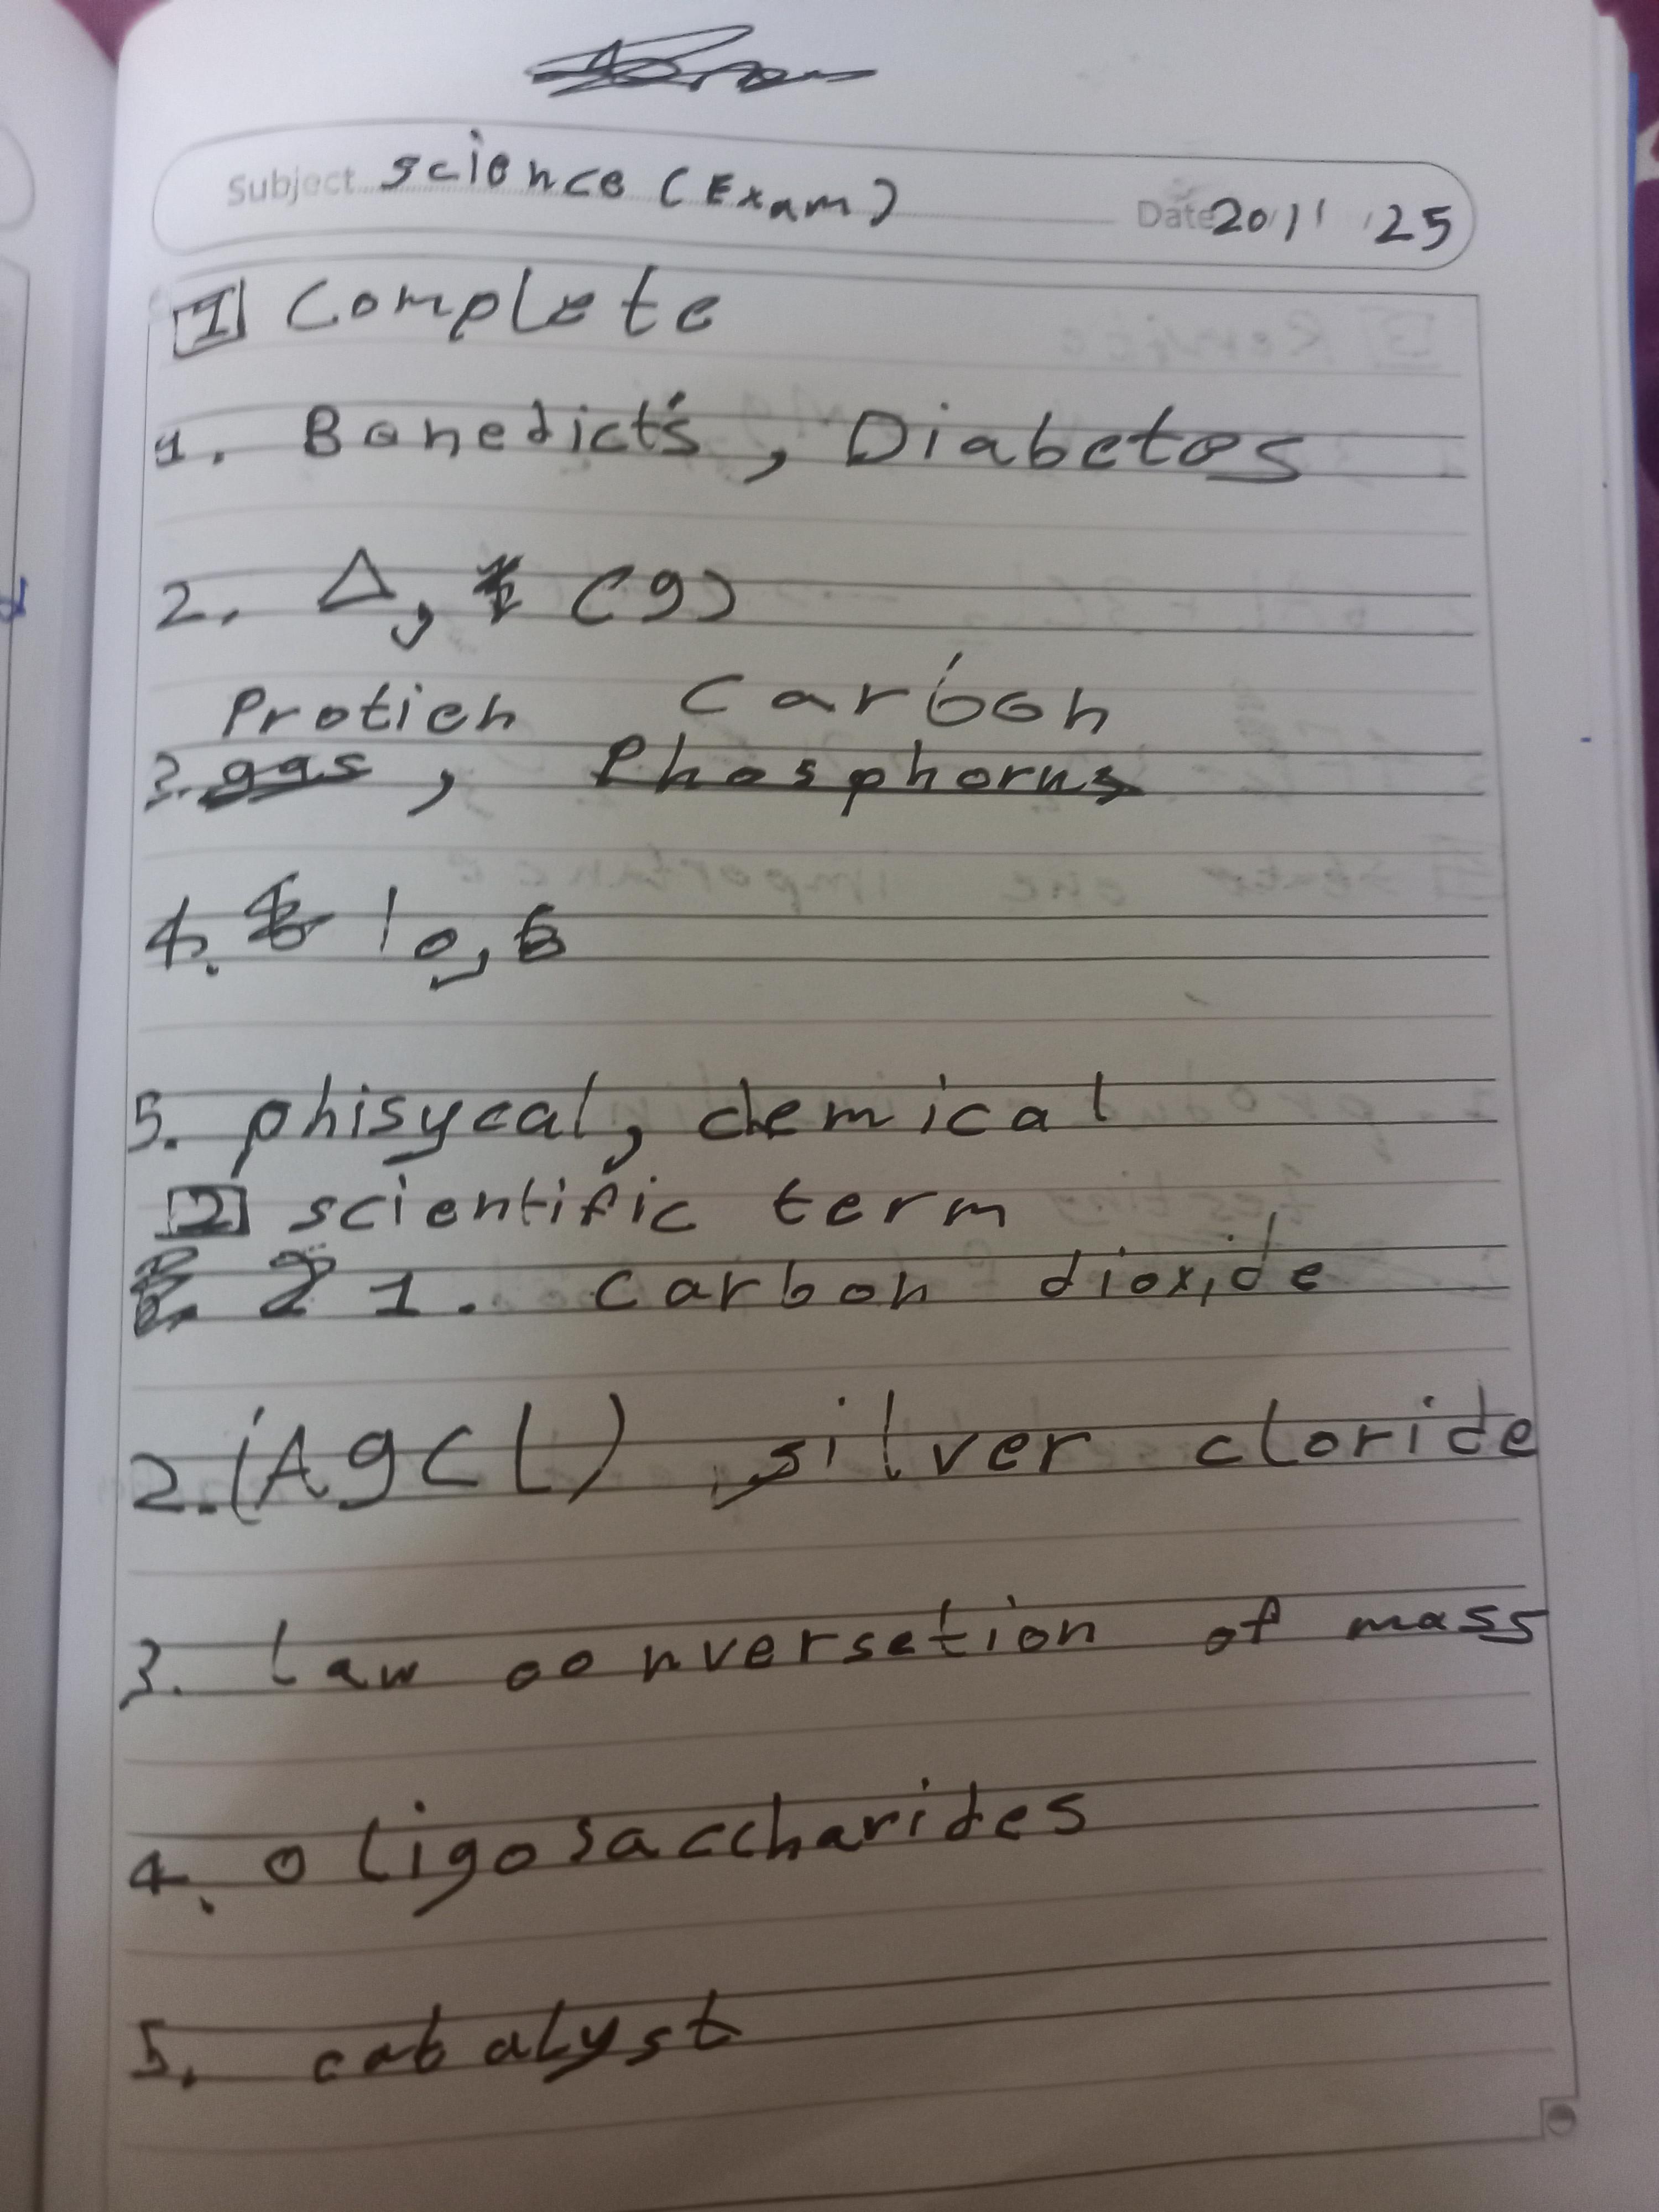 Subject science (Exam) Date 20/11/25
1 Complete
1. Benedict's, Diabetes
2. Δ, (g)
Protien Carbon
3. gas, Phosphorus
4. 10, 6
5. phisycal, chemical
2 scientific term
1. carbon dioxide
2. (AgCl) silver cloride
3. law conversetion of mass
4. oligosaccharides
5. catalyst